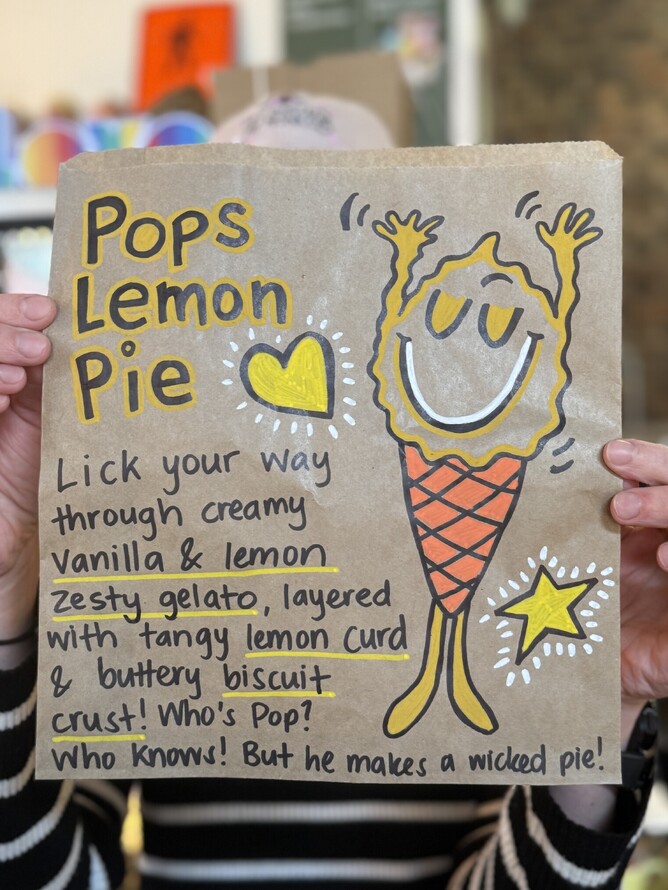 Pops
Lemon
Pie
Lick your way
through creamy
vanilla & lemon
zesty gelato, layered
with tangy lemon curd
& buttery biscuit
crust! Who's Pop?
Who knows! But he makes a wicked pie!